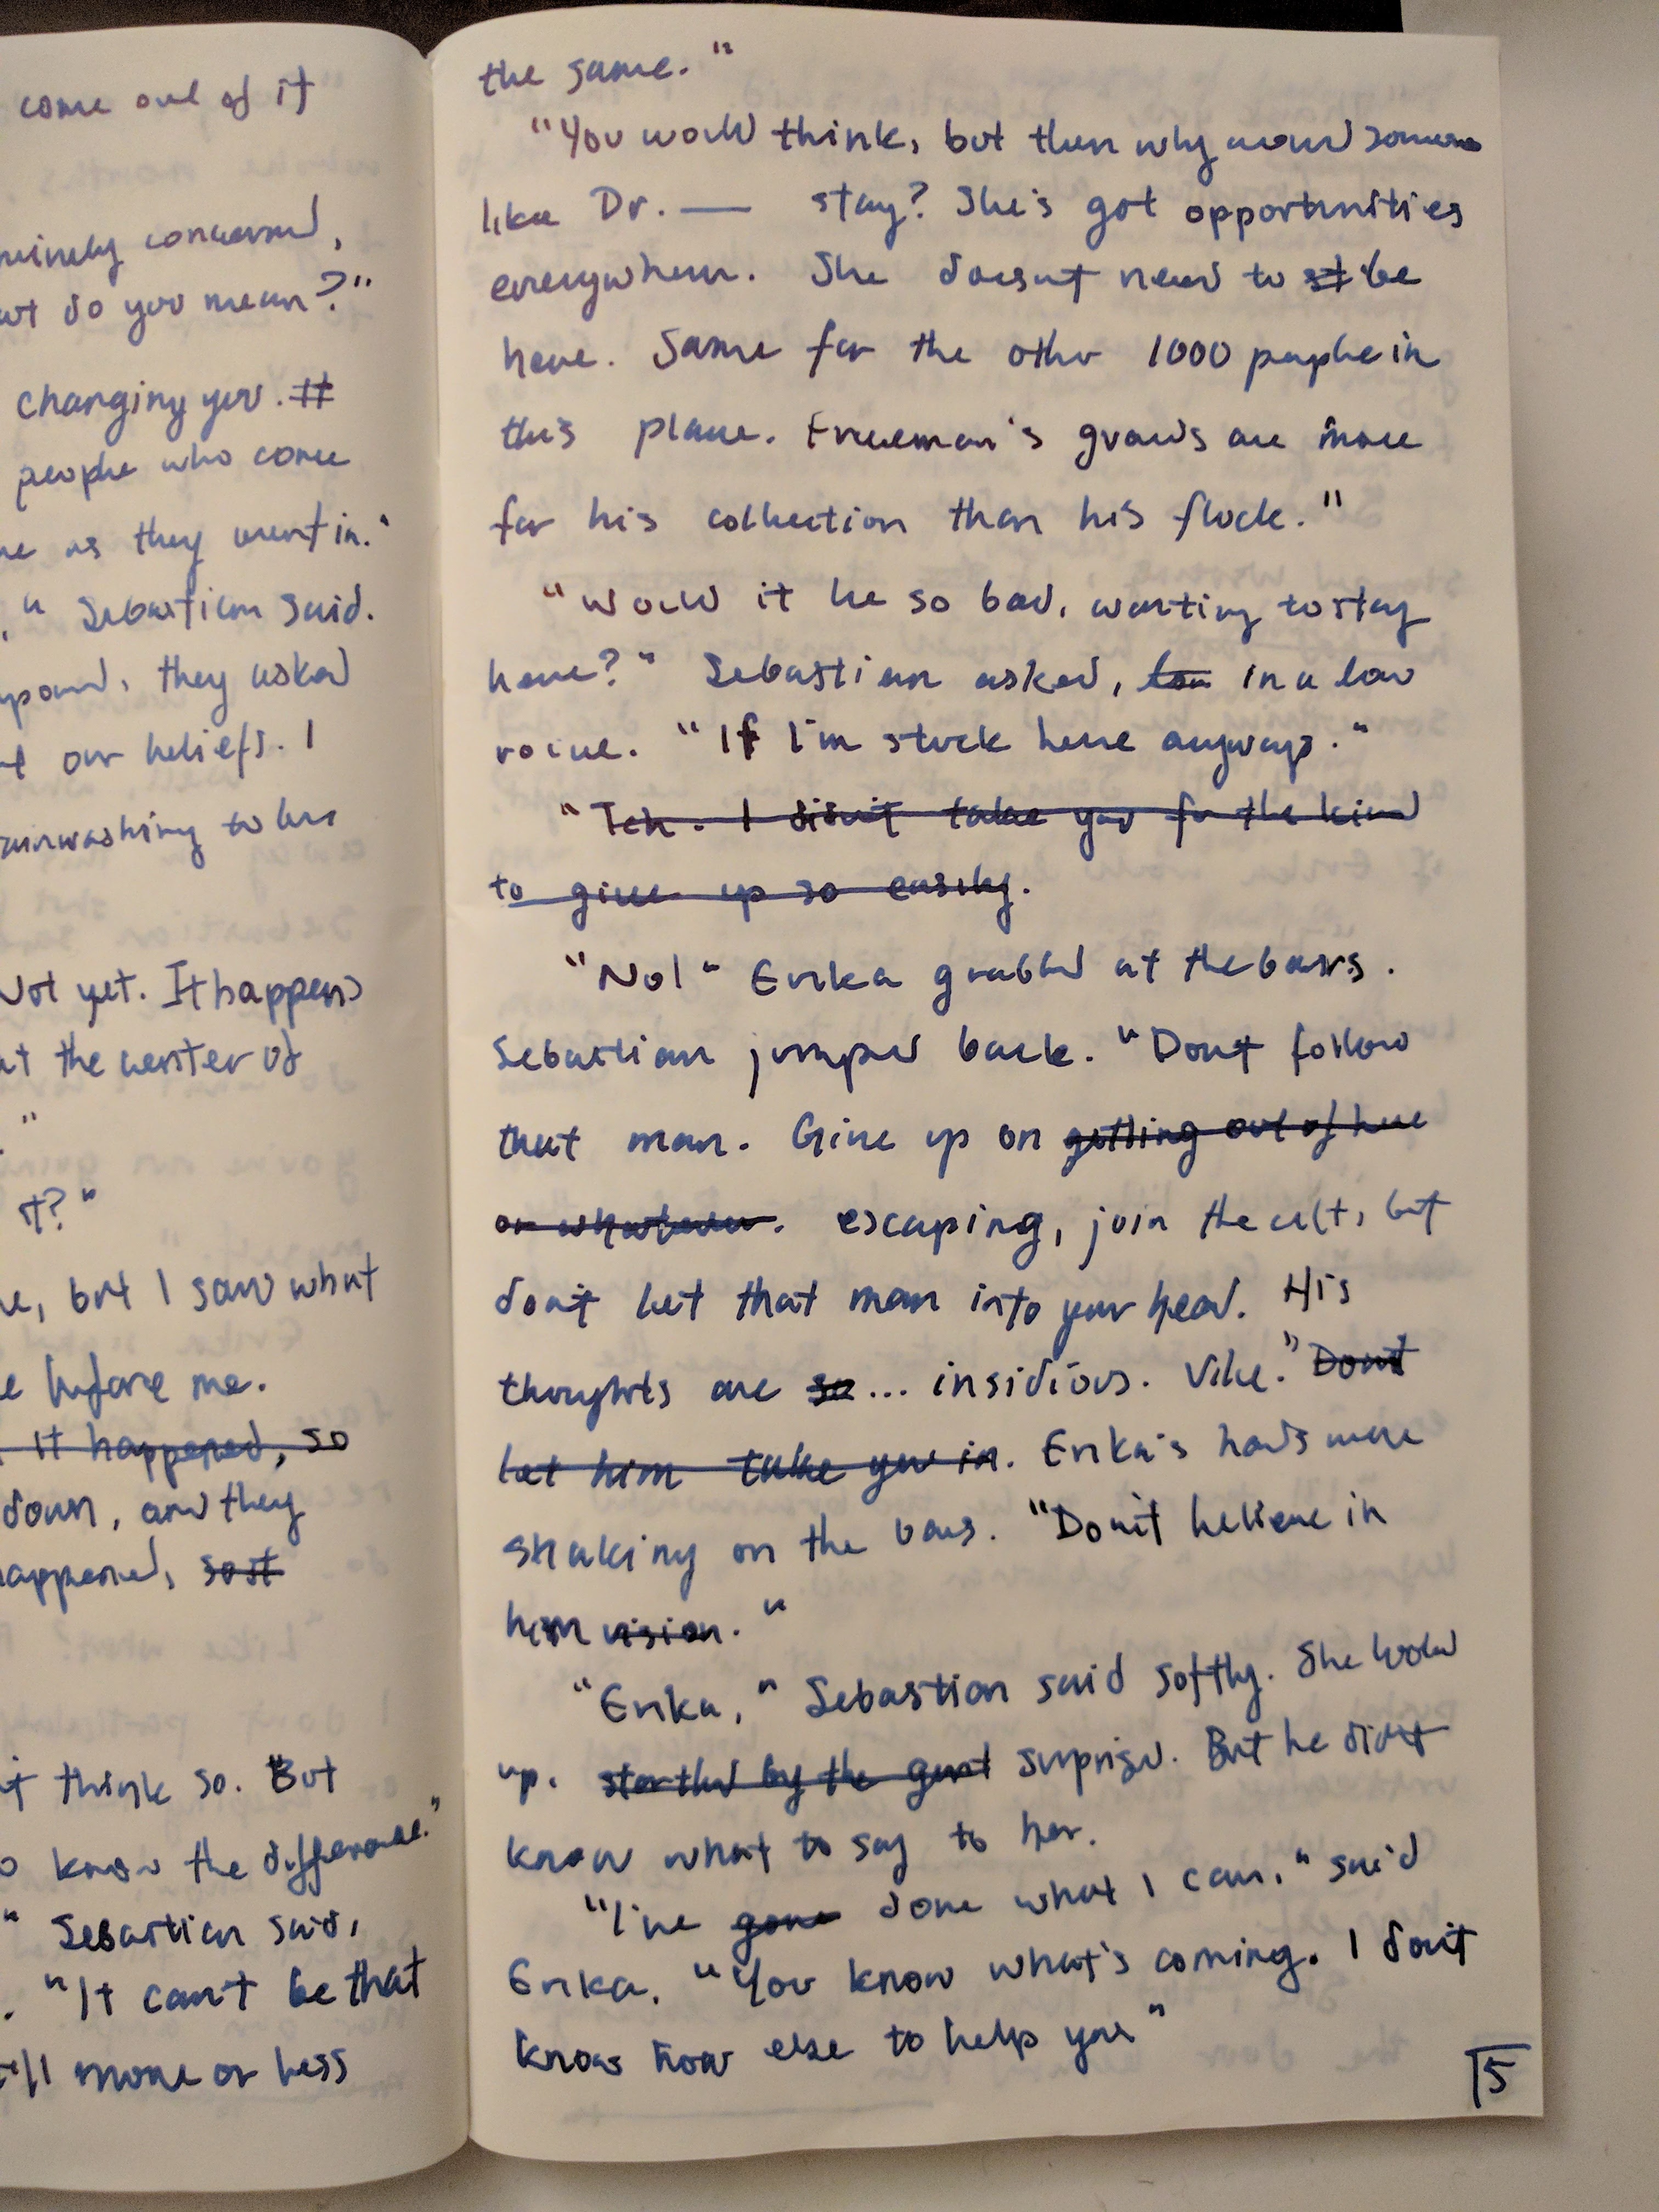 come out of it
concerned,
do you mean?"
changing you. #
people who come
as they went in."
," Sebastian said.
they asked
our beliefs. I
to
Not yet. It happens
at the center of
"
it?"
, but I saw what
before me.
it happened, so
down, and they
happened, so it
think so. But
know the difference."
" Sebastian said,
. "It can't be that
more or less
the same."
"You would think, but then why would someone
like Dr. — stay? She's got opportunities
everywhere. She doesn't need to st be
here. Same for the other 1000 people in
this place. Freeman's grounds are more
for his collection than his flock."
"Would it be so bad, wanting to stay
here?" Sebastian asked, low in a low
voice. "If I'm stuck here anyways."
"Tch. I didn't take you for the kind
to give up so easily.
"No!" Erika grabbed at the bars.
Sebastian jumped back. "Don't follow
that man. Give up on getting out of here
or whatever. escaping, join the cult, but
don't let that man into your head. His
thoughts are so... insidious. Vile." Don't
let him take you in. Erika's hands were
shaking on the bars. "Don't believe in
him vision."
"Erika," Sebastian said softly. She looked
up. startled by the surprised. But he didn't
know what to say to her.
"I've gone done what I can," said
Erika. "You know what's coming. I don't
know how else to help you"
15